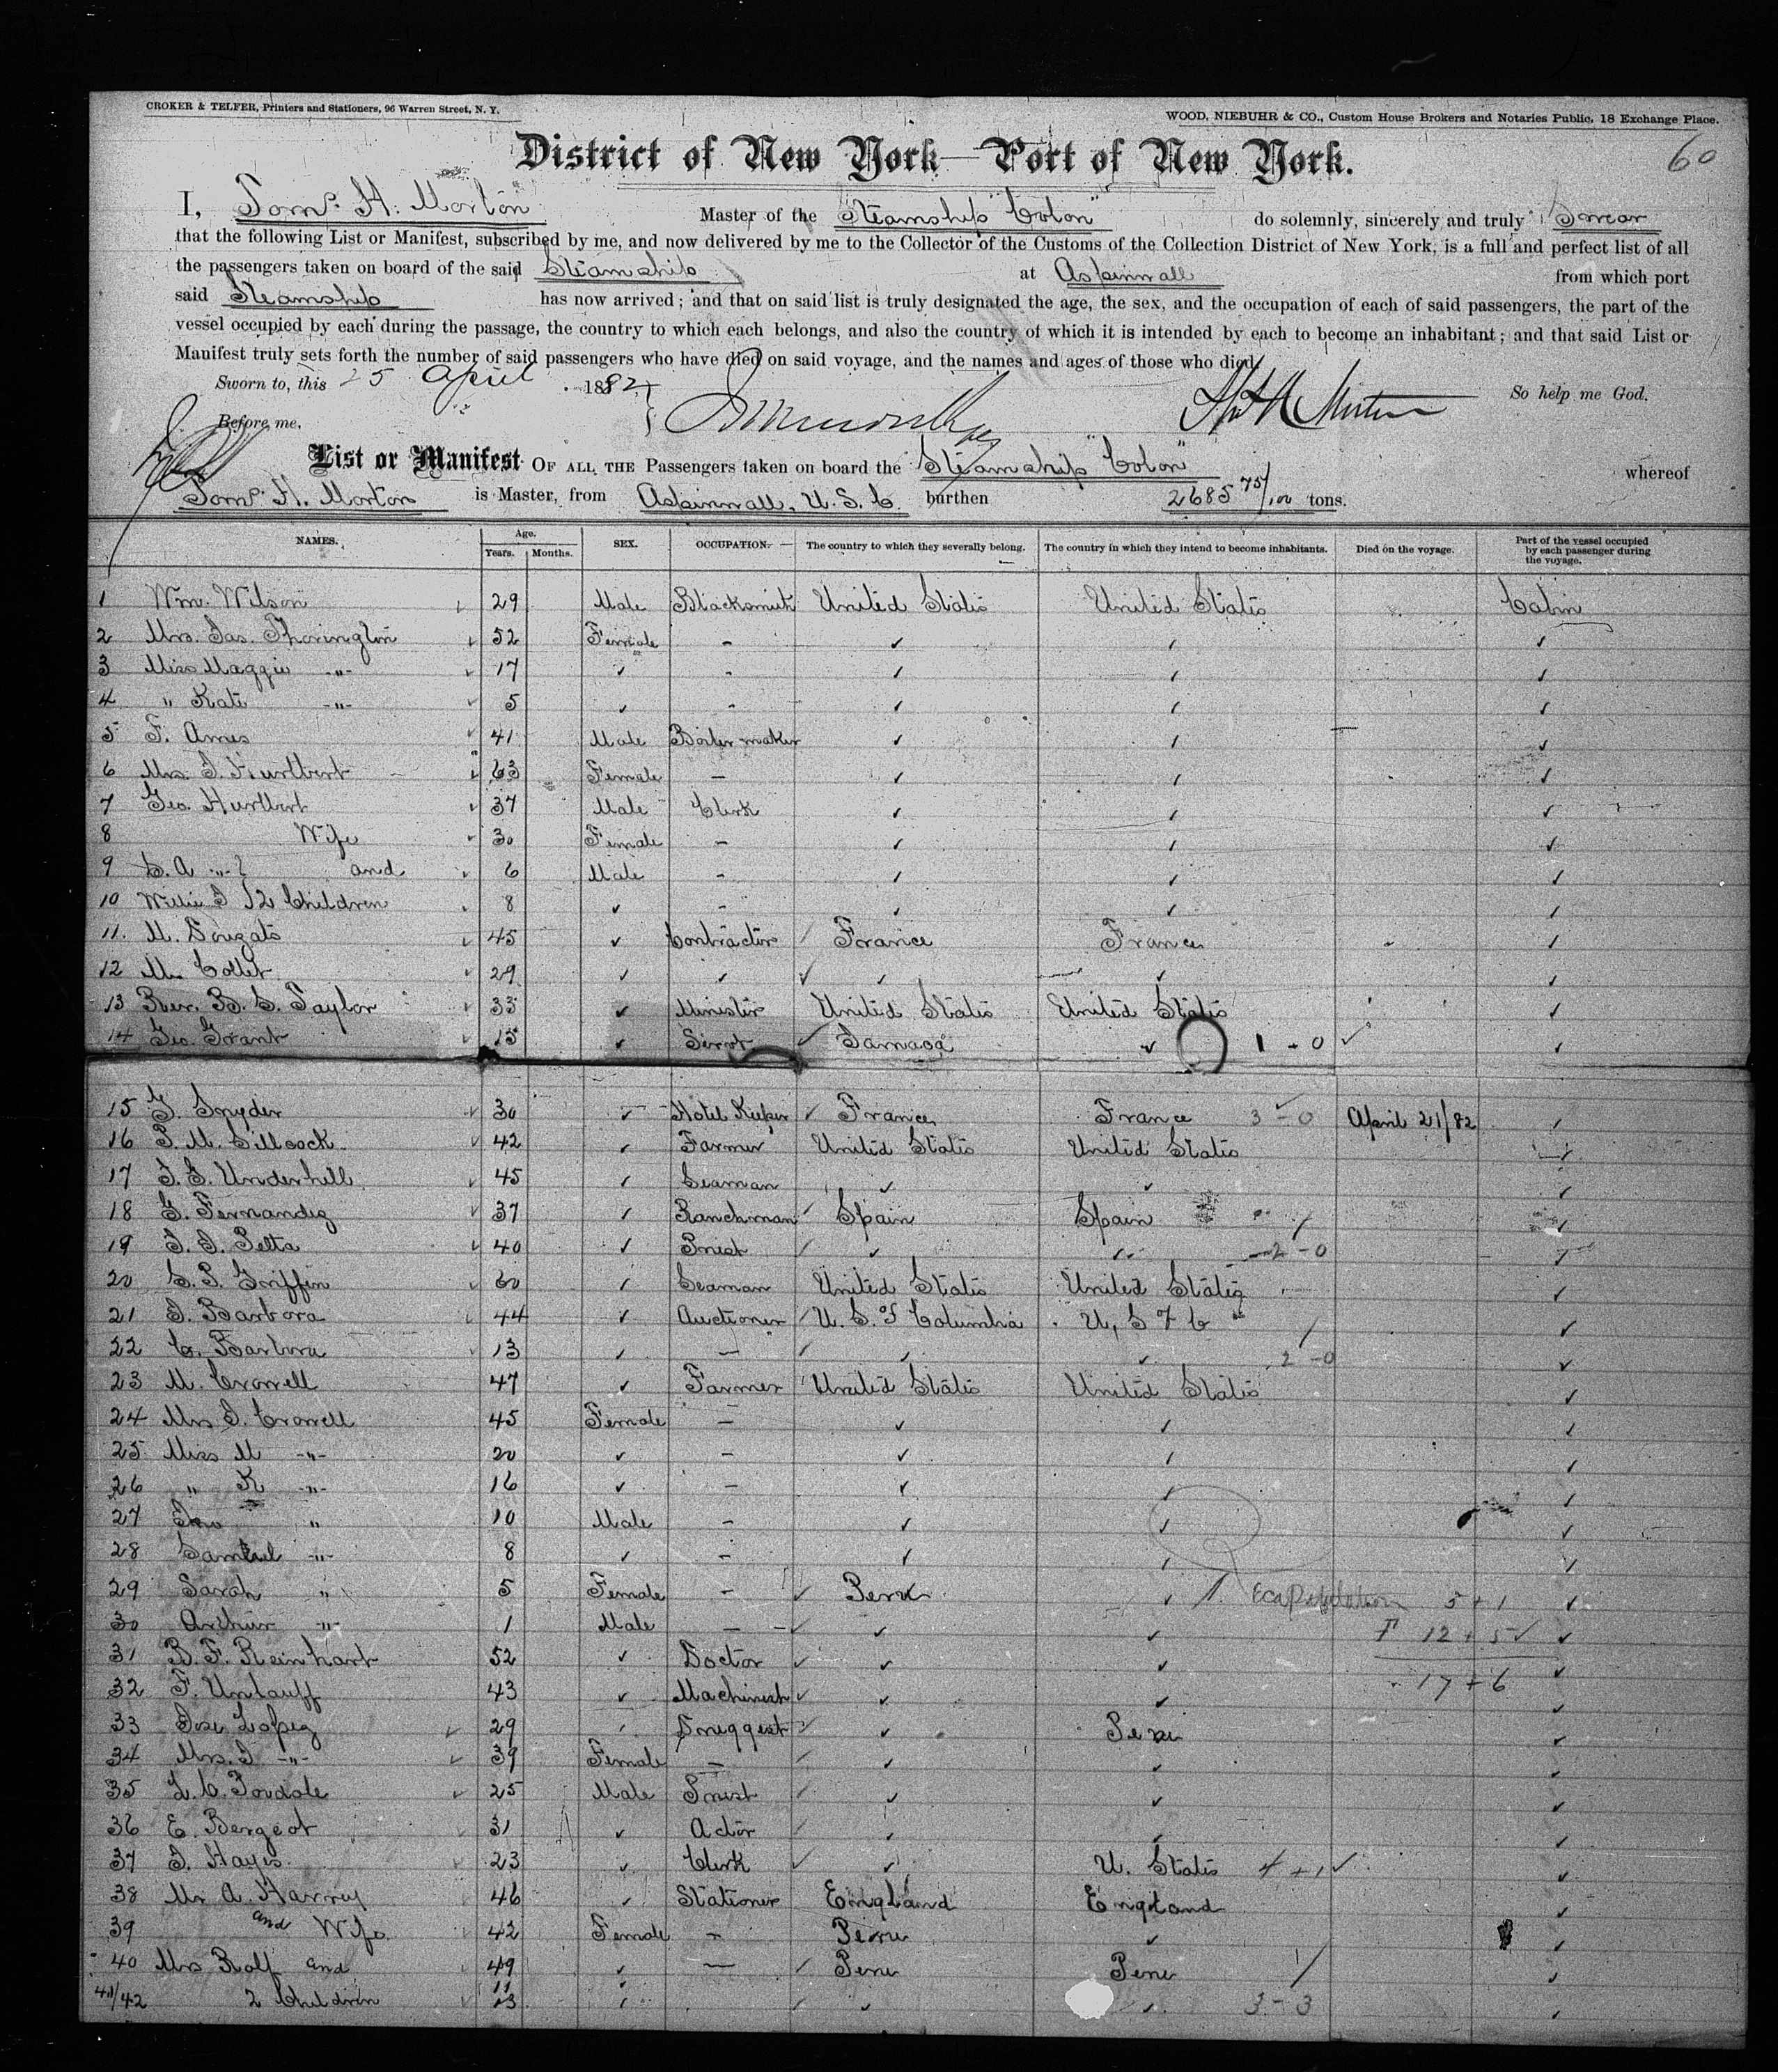 CROKER & TELFER, Printers and Stationers, 96 Warren Street, N. Y.
WOOD, NIEBUHR & CO., Custom House Brokers and Notaries Public, 18 Exchange Place.
60
District of New York—Port of New York.
I, H. Morton Master of the Steamship "Colon" do solemnly, sincerely and truly Swear
that the following List or Manifest, subscribed by me, and now delivered by me to the Collector of the Customs of the Collection District of New York, is a full and perfect list of all
the passengers taken on board of the said Steamship at Aspinwall from which port
said Steamship has now arrived; and that on said list is truly designated the age, the sex, and the occupation of each of said passengers, the part of the
vessel occupied by each during the passage, the country to which each belongs, and also the country of which it is intended by each to become an inhabitant; and that said List or
Manifest truly sets forth the number of said passengers who have died on said voyage, and the names and ages of those who died.
Sworn to, this 25 April 1882 So help me God.
Before me,
List or Manifest OF ALL THE Passengers taken on board the Steamship "Colon" whereof
H. Morton is Master, from Aspinwall, U. S. C. burthen 2685 75/100 tons.
NAMES. Age. Years. Months. SEX. OCCUPATION. The country to which they severally belong. The country in which they intend to become inhabitants. Died on the voyage. Part of the vessel occupied by each passenger during the voyage.
1 Wm. Wilson 29 Male Blacksmith United States United States Cabin
2 Mrs. Jas. Thorington 52 Female - ✓ ✓ ✓
3 Miss Maggie -"- 17 ✓ - ✓ ✓ ✓
4 " Kate -"- 5 ✓ - ✓ ✓ ✓
5 F. Ames 41 Male Boiler maker ✓ ✓ ✓
6 Mrs. J. Hurlbert 63 Female - ✓ ✓ ✓
7 Geo. Hurlbert 37 Male Clerk ✓ ✓ ✓
8 Wife 30 Female - ✓ ✓ ✓
9 A -"- and 6 Male - ✓ ✓ ✓
10 Willie 2 Children 8 ✓ - ✓ ✓ ✓
11. M. 45 ✓ Contractor France France ✓
12 M. Collet 29 ✓ ✓ ✓ ✓ ✓
13 Rev. B. S. Taylor 33 ✓ Minister United States United States ✓
14 Geo. Grant 15 ✓ ✓ 1 - 0 ✓ ✓
15 G. Snyder 30 ✓ Hotel Keeper France France 3 - 0 April 21/82 ✓
16 42 ✓ Farmer United States United States ✓
17 Underhill 45 ✓ Seaman ✓ ✓ ✓
18 G. Fernandez 37 ✓ Ranchman Spain Spain ✓
19 40 ✓ Priest ✓ ✓ 2 - 0 ✓
20 Griffin 60 ✓ Seaman United States United States ✓
21 J. Barbora 44 ✓ Auctioner U. S. of Columbia U. S of C ✓
22 C. Barbora 13 ✓ - ✓ ✓ 2 - 0 ✓
23 M. Crowell 47 ✓ Farmer United States United States ✓
24 Mrs J. Crowell 45 Female - ✓ ✓ ✓
25 Miss M -"- 20 ✓ - ✓ ✓ ✓
26 " K -"- 16 ✓ - ✓ ✓ ✓
27 " 10 Male - ✓ ✓ ✓
28 Samuel -"- 8 ✓ - ✓ ✓ ✓
29 Sarah " 5 Female - Peru ✓ Recapitulation 5 + 1 ✓
30 Arthur -"- 1 Male - ✓ ✓ 12 + 5 ✓ ✓
31 B. F. Reinhart 52 ✓ Doctor ✓ ✓ ✓
32 F. Umlauff 43 ✓ Machinist ✓ ✓ 17 + 6 ✓
33 Jose Lopez 29 ✓ Druggist ✓ Peru ✓
34 Mrs. J -"- 39 Female - ✓ ✓ ✓
35 L. C. 25 Male Priest ✓ ✓ ✓
36 E. Bergeot 31 ✓ Actor ✓ ✓ ✓
37 J. Hayes 23 ✓ Clerk ✓ U. States 4 + 1 ✓ ✓
38 Mr A. Harvey 46 ✓ Stationer England England ✓
39 and Wife 42 Female - Peru ✓ ✓
40 Mrs Rolf and 49 ✓ - Peru Peru ✓
41/42 2 Children 11 13 ✓ ✓ ✓ 3 - 3 ✓